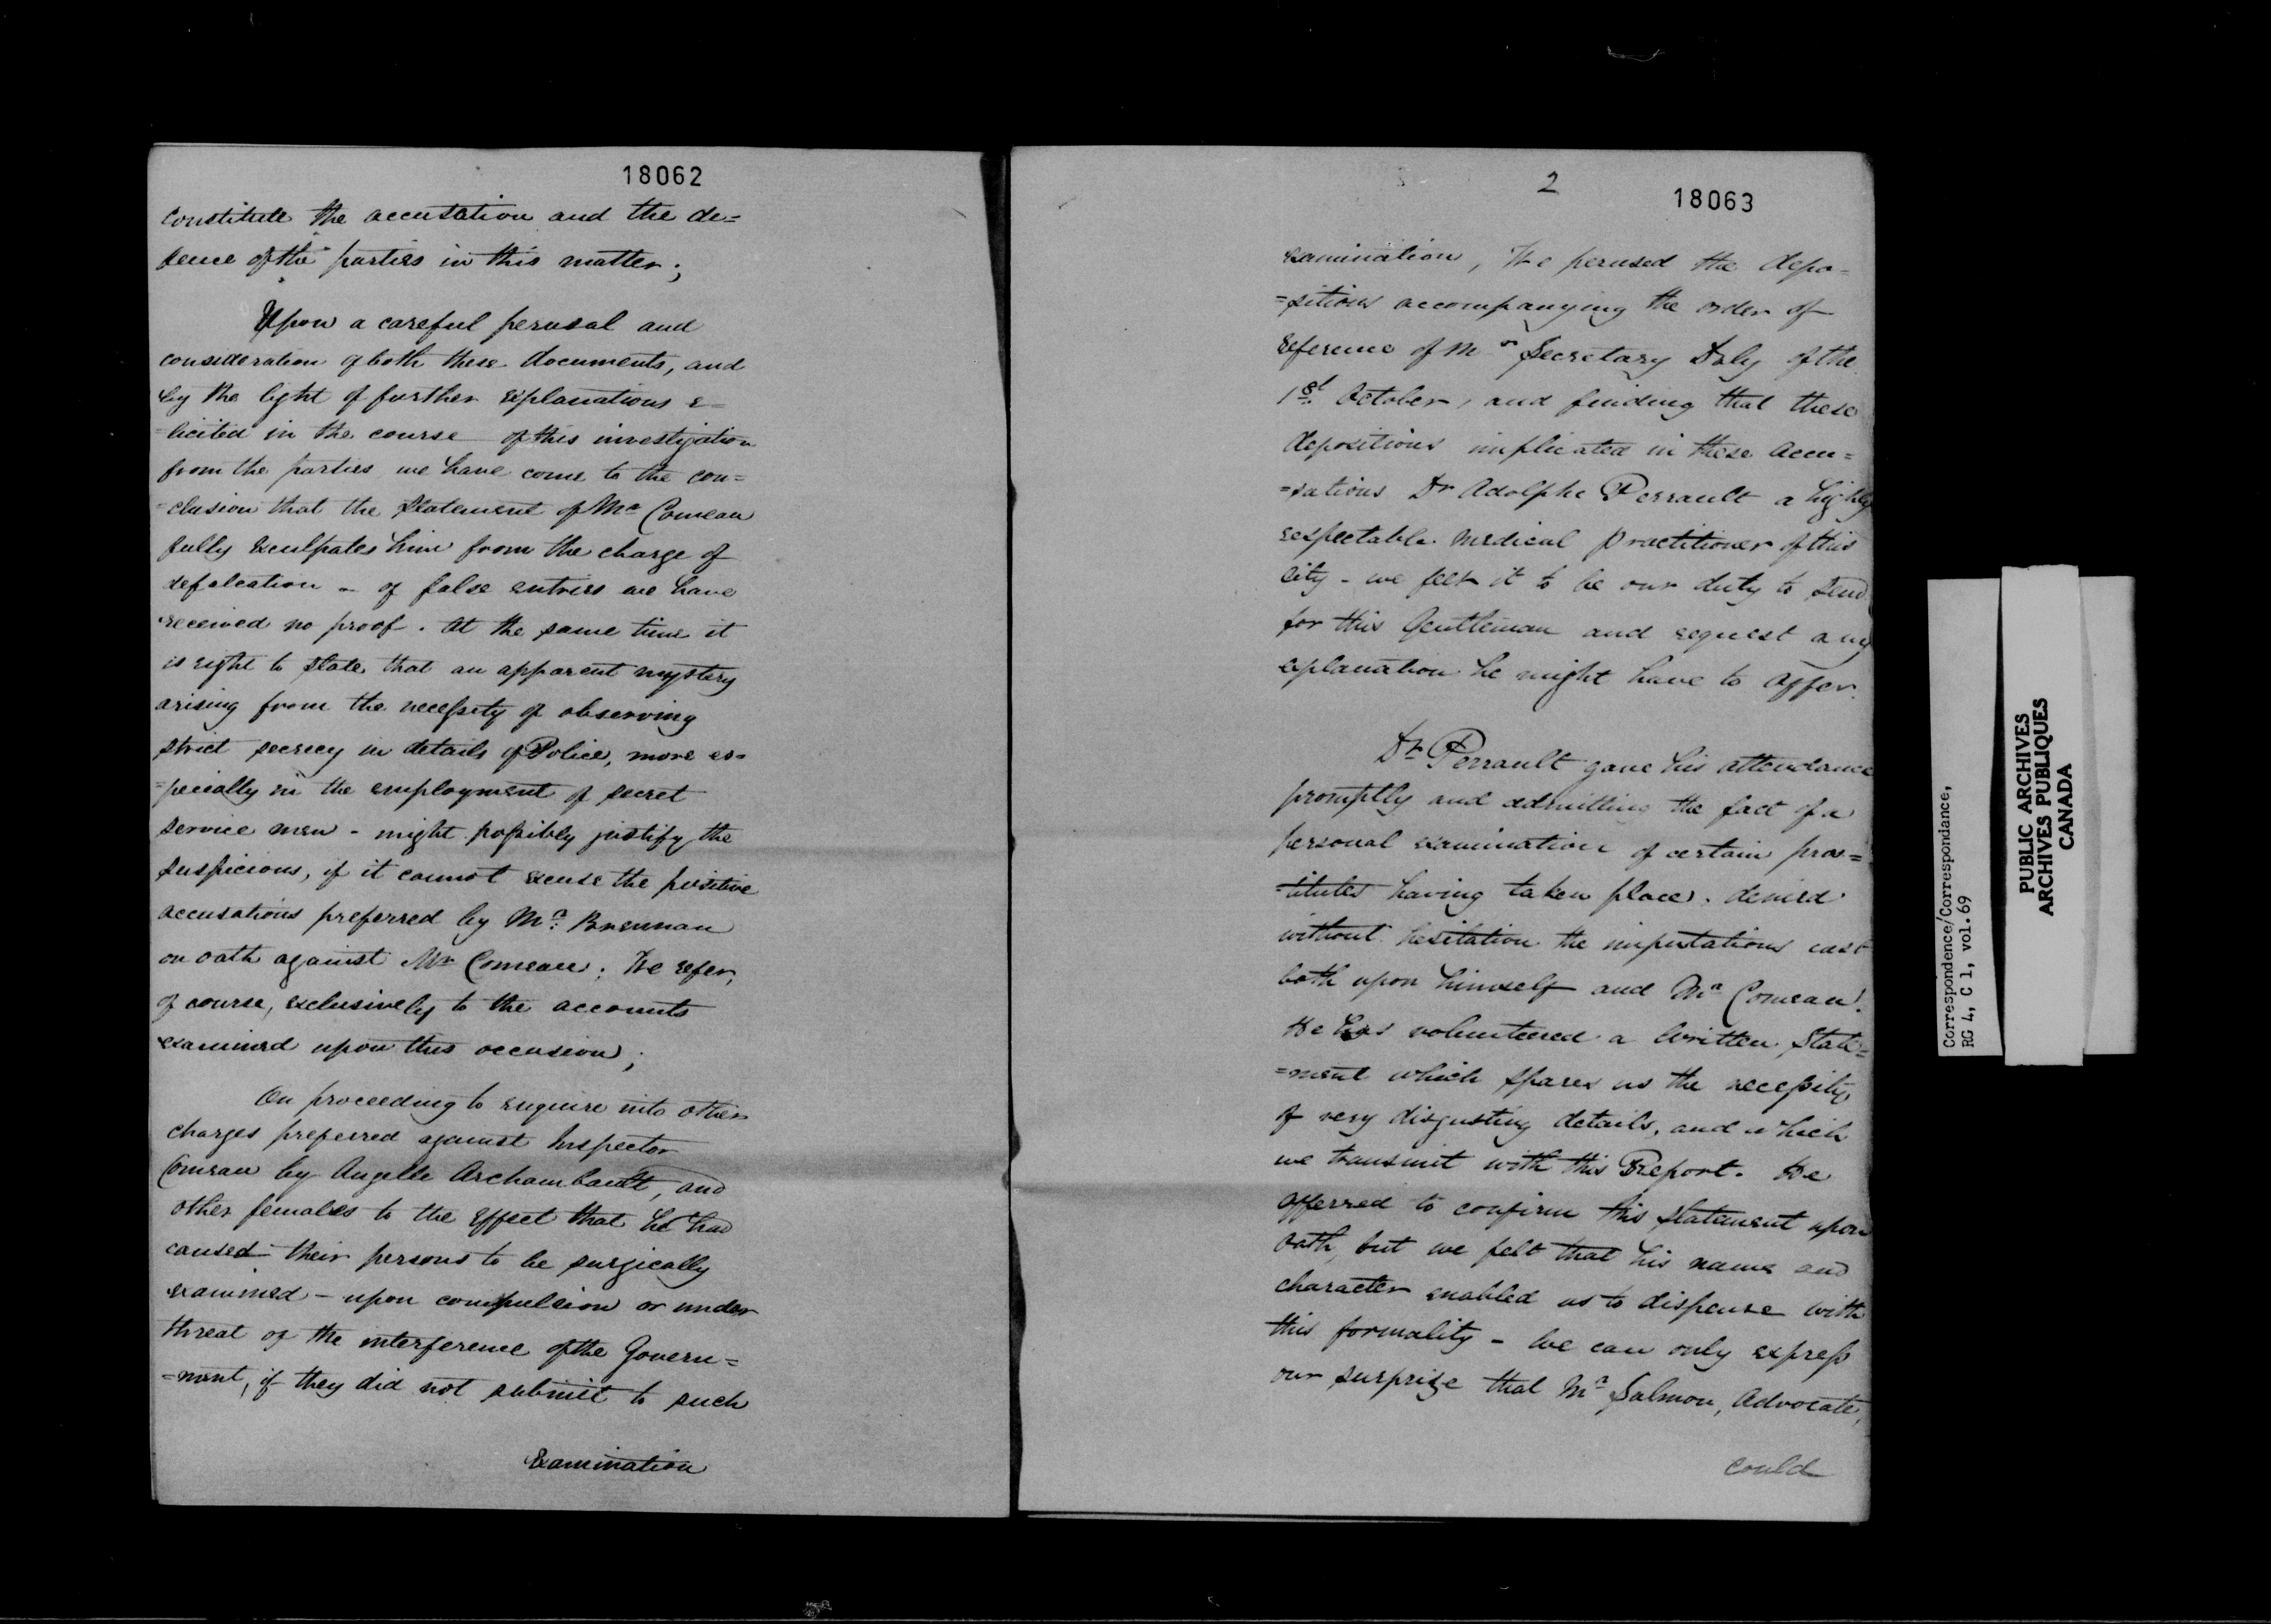 18062
constitute the accusation and the de=
fence of the parties in this matter;
Upon a careful perusal and
consideration of both these documents, and
by the light of further explanations e=
=licited in the course of this investigation
from the parties we have come to the con=
=clusion that the statement of Mr Comeau
fully exculpates him from the charge of
defalcation - of false entries we have
received no proof. At the same time it
is right to state that an apparent mystery
arising from the necessity of observing
strict secrecy in details of Police, more es=
=pecially in the employment of secret
service men - might possibly justify the
suspicions, if it cannot excuse the positive
accusations preferred by Mr. Brennan
on oath against Mr Comeau; We refer,
of course, exclusively to the accounts
examined upon this occasion;
On proceeding to enquire into other
charges preferred against Inspector
Comeau by Angelle Archambault, and
other females to the effect that he had
caused their persons to be surgically
examined - upon compulsion or under
threat of the interference of the Govern=
=ment, if they did not submit to such
Examination
2
18063
examination, We perused the depo=
=sitions accompanying the order of
reference of Mr Secretary Daly of the
1st October, and finding that these
depositions implicated in these accu=
=sations Dr Adolphe Perrault a highly
respectable medical practitioner of this
city - we felt it to be our duty to send
for this Gentleman and request any
explanation he might have to offer.
Dr Perrault gave his attendance
promptly and admitting the fact of a
personal examination of certain pros=
=titutes having taken place, denied
without hesitation the imputations cast
both upon himself and Mr Comeau.
He has volunteered a written State=
=ment which spares us the necessity
of very disgusting details, and which
we transmit with this Report. He
offerred to confirm this statement upon
oath, but we felt that his name and
character enabled us to dispense with
this formality - We can only express
our surprize that Mr Salmon, Advocate,
could
Correspondence/Correspondance,
RG 4, C 1, vol.69
PUBLIC ARCHIVES
ARCHIVES PUBLIQUES
CANADA